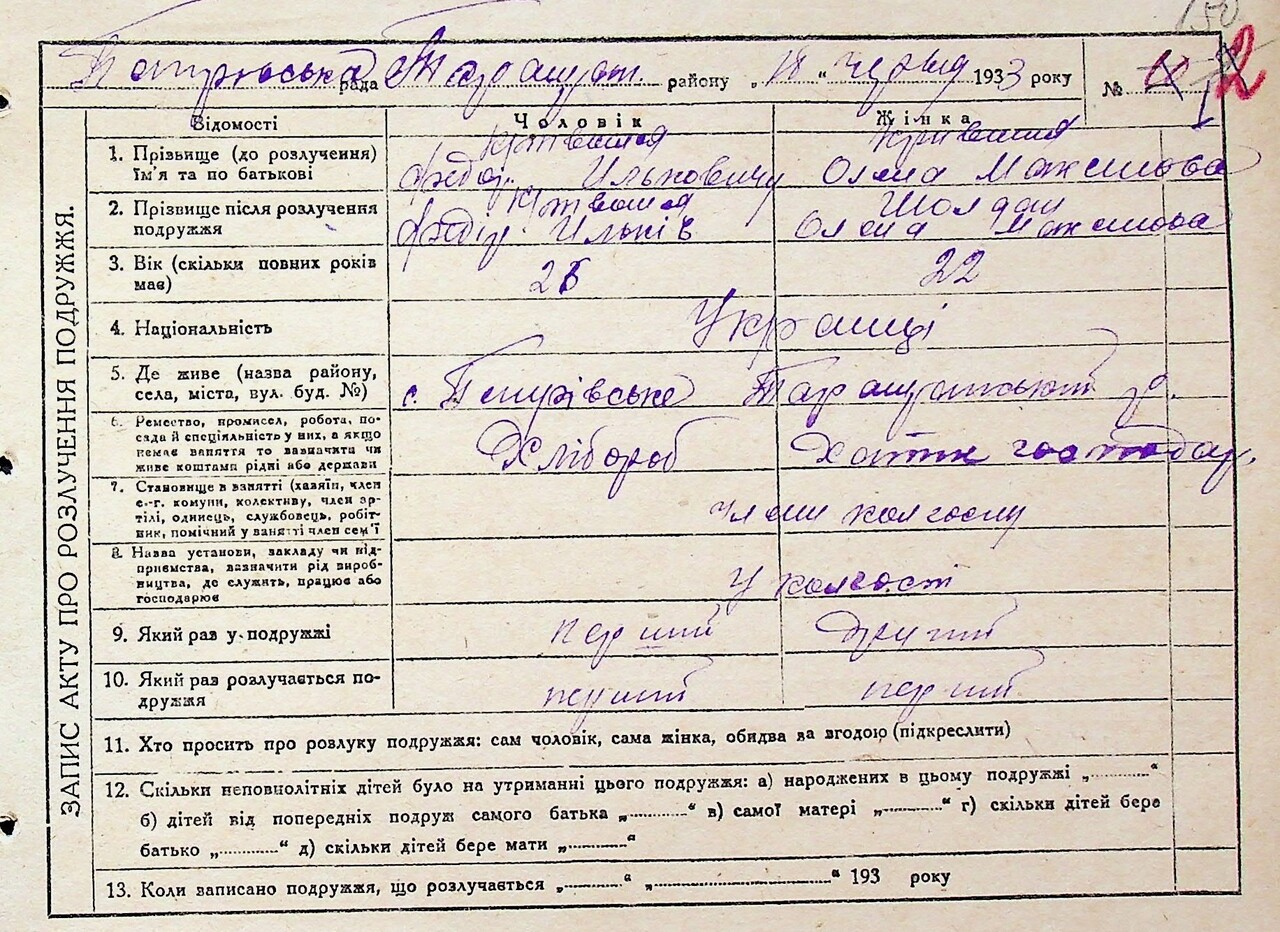 рада Таращан. району „18“ червня 1933 року № 2
ЗАПИС АКТУ ПРО РОЗЛУЧЕННЯ ПОДРУЖЖЯ.
Відомості Чоловік Жінка
1. Прізвище (до розлучення) їм'я та по батькові
Федір Ількович Олена Максимова
2. Прізвище після розлучення подружжя
Федір Ільків Олена Максимова
3. Вік (скільки повних років має) 22
4. Національність Українці
5. Де живе (назва району, села, міста, вул. буд. №) с. Петрівське Таращанський р.
6. Ремество, промисел, робота, посада й спеціяльність у них, а якщо немає ваняття то вазначити чи живе коштами рідні або держави
Хлібороб Хатнє господар.
7. Становище в взнятті (хазяїн, член с.-г. комуни, колективу, член артілі, одинець, службовець, робітник, помічний у ванятті член сем'ї
члени колгоспу
8. Назва установи, закладу чи підприємства, вазначити рід виробництва, де служить, працює або господарює
У колгоспі
9. Який раз у подружжі перший другий
10. Який раз розлучається подружжя перший перший
11. Хто просить про розлуку подружжя: сам чоловік, сама жінка, обидва за згодою (підкреслити)
12. Скільки неповнолітніх дітей було на утриманні цього подружжя: а) народжених в цьому подружжі „..........“
б) дітей від попередніх подруж самого батька „..........“ в) самої матері „..........“ г) скільки дітей бере
батько „..........“ д) скільки дітей бере мати „..........“
13. Коли записано подружжя, що розлучається „..........“ „..............................“ 193 року